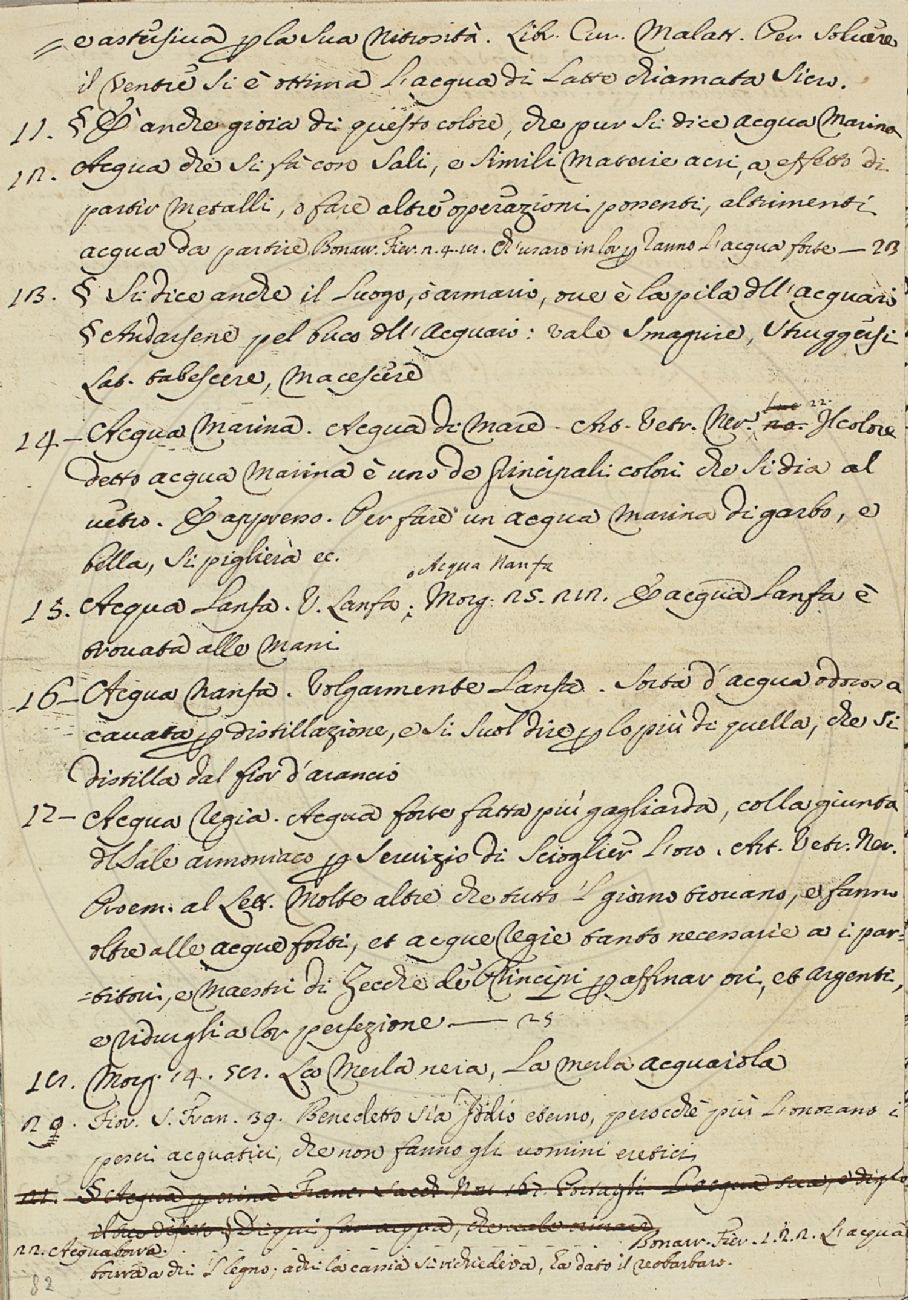 = e astersiva p la sua Nitrosità. Libr. Cur. Malatt. Per solvere
il Ventre si è ottima l'acqua di Latte chiamata Siero.
11. § E anche gioia di questo colore, che pur si dice acqua Marina
12. Acqua che si fà con Sali, e simili Materie acri, a effetto di
partir Metalli, o fare altre operazioni possenti, altrimenti
acqua da partire Bonarr. Fier. n. 4. Ch'usaro in lor p ranno l'acqua forte — 23
13. § Si dice anche il Luogo, ò armario, ove è la pila dll'acquaio
§ Andarsene pel buco dll'Acquaio: vale Smagrire, Struggersi
Lat. tabescere, Macescere
14. – Acqua Marina. Acqua di Mare. Art. Vetr. Ner. 22. Il colore
detto acqua Marina è uno de principali colori che si dia al
vetro. E appresso. Per fare un acqua Marina di garbo, e
bella, si piglierà ec.
o Acqua Nanfa
15. Acqua Lanfa. V. Lanfa. Morg. 25. 212. E acqua Lanfa è
trovata alle Mani
16 – Acqua Nanfa. Volgarmente Lanfa. Sorta d'acqua odorosa
cavata p distillazione, e si suol dire p lo più di quella, che si
distilla dal fior d'arancio
17 – Acqua Regia. Acqua forte fatta più gagliarda, colla giunta
dl Sale armoniaco p servizio di scioglier l'oro. Art. Vetr. Ner.
Proem. al Lett. Molte altre che tutto 'l giorno trovano, e fanno
oltre alle acque forti, et acque Regie tanto necessarie a i par=
=titori, e Maestri di Zecche de Principi p affinar ori, et argenti,
e ridurgli a lor perfezione — 25
Morg. 14. La Merla nera, La merla acquaiola
Fior. S. Fran. 39. Benedetto sia Iddio eterno, perocchè più l'onorano i
pesci acquatici, che non fanno gli uomini eretici
§ Acqua
22. Acqua borra. Bonarr. Fier. L'acqua
borra a chi 'l legno; a chi la cassia si richiedeva, ha dato il reobarbaro.
82